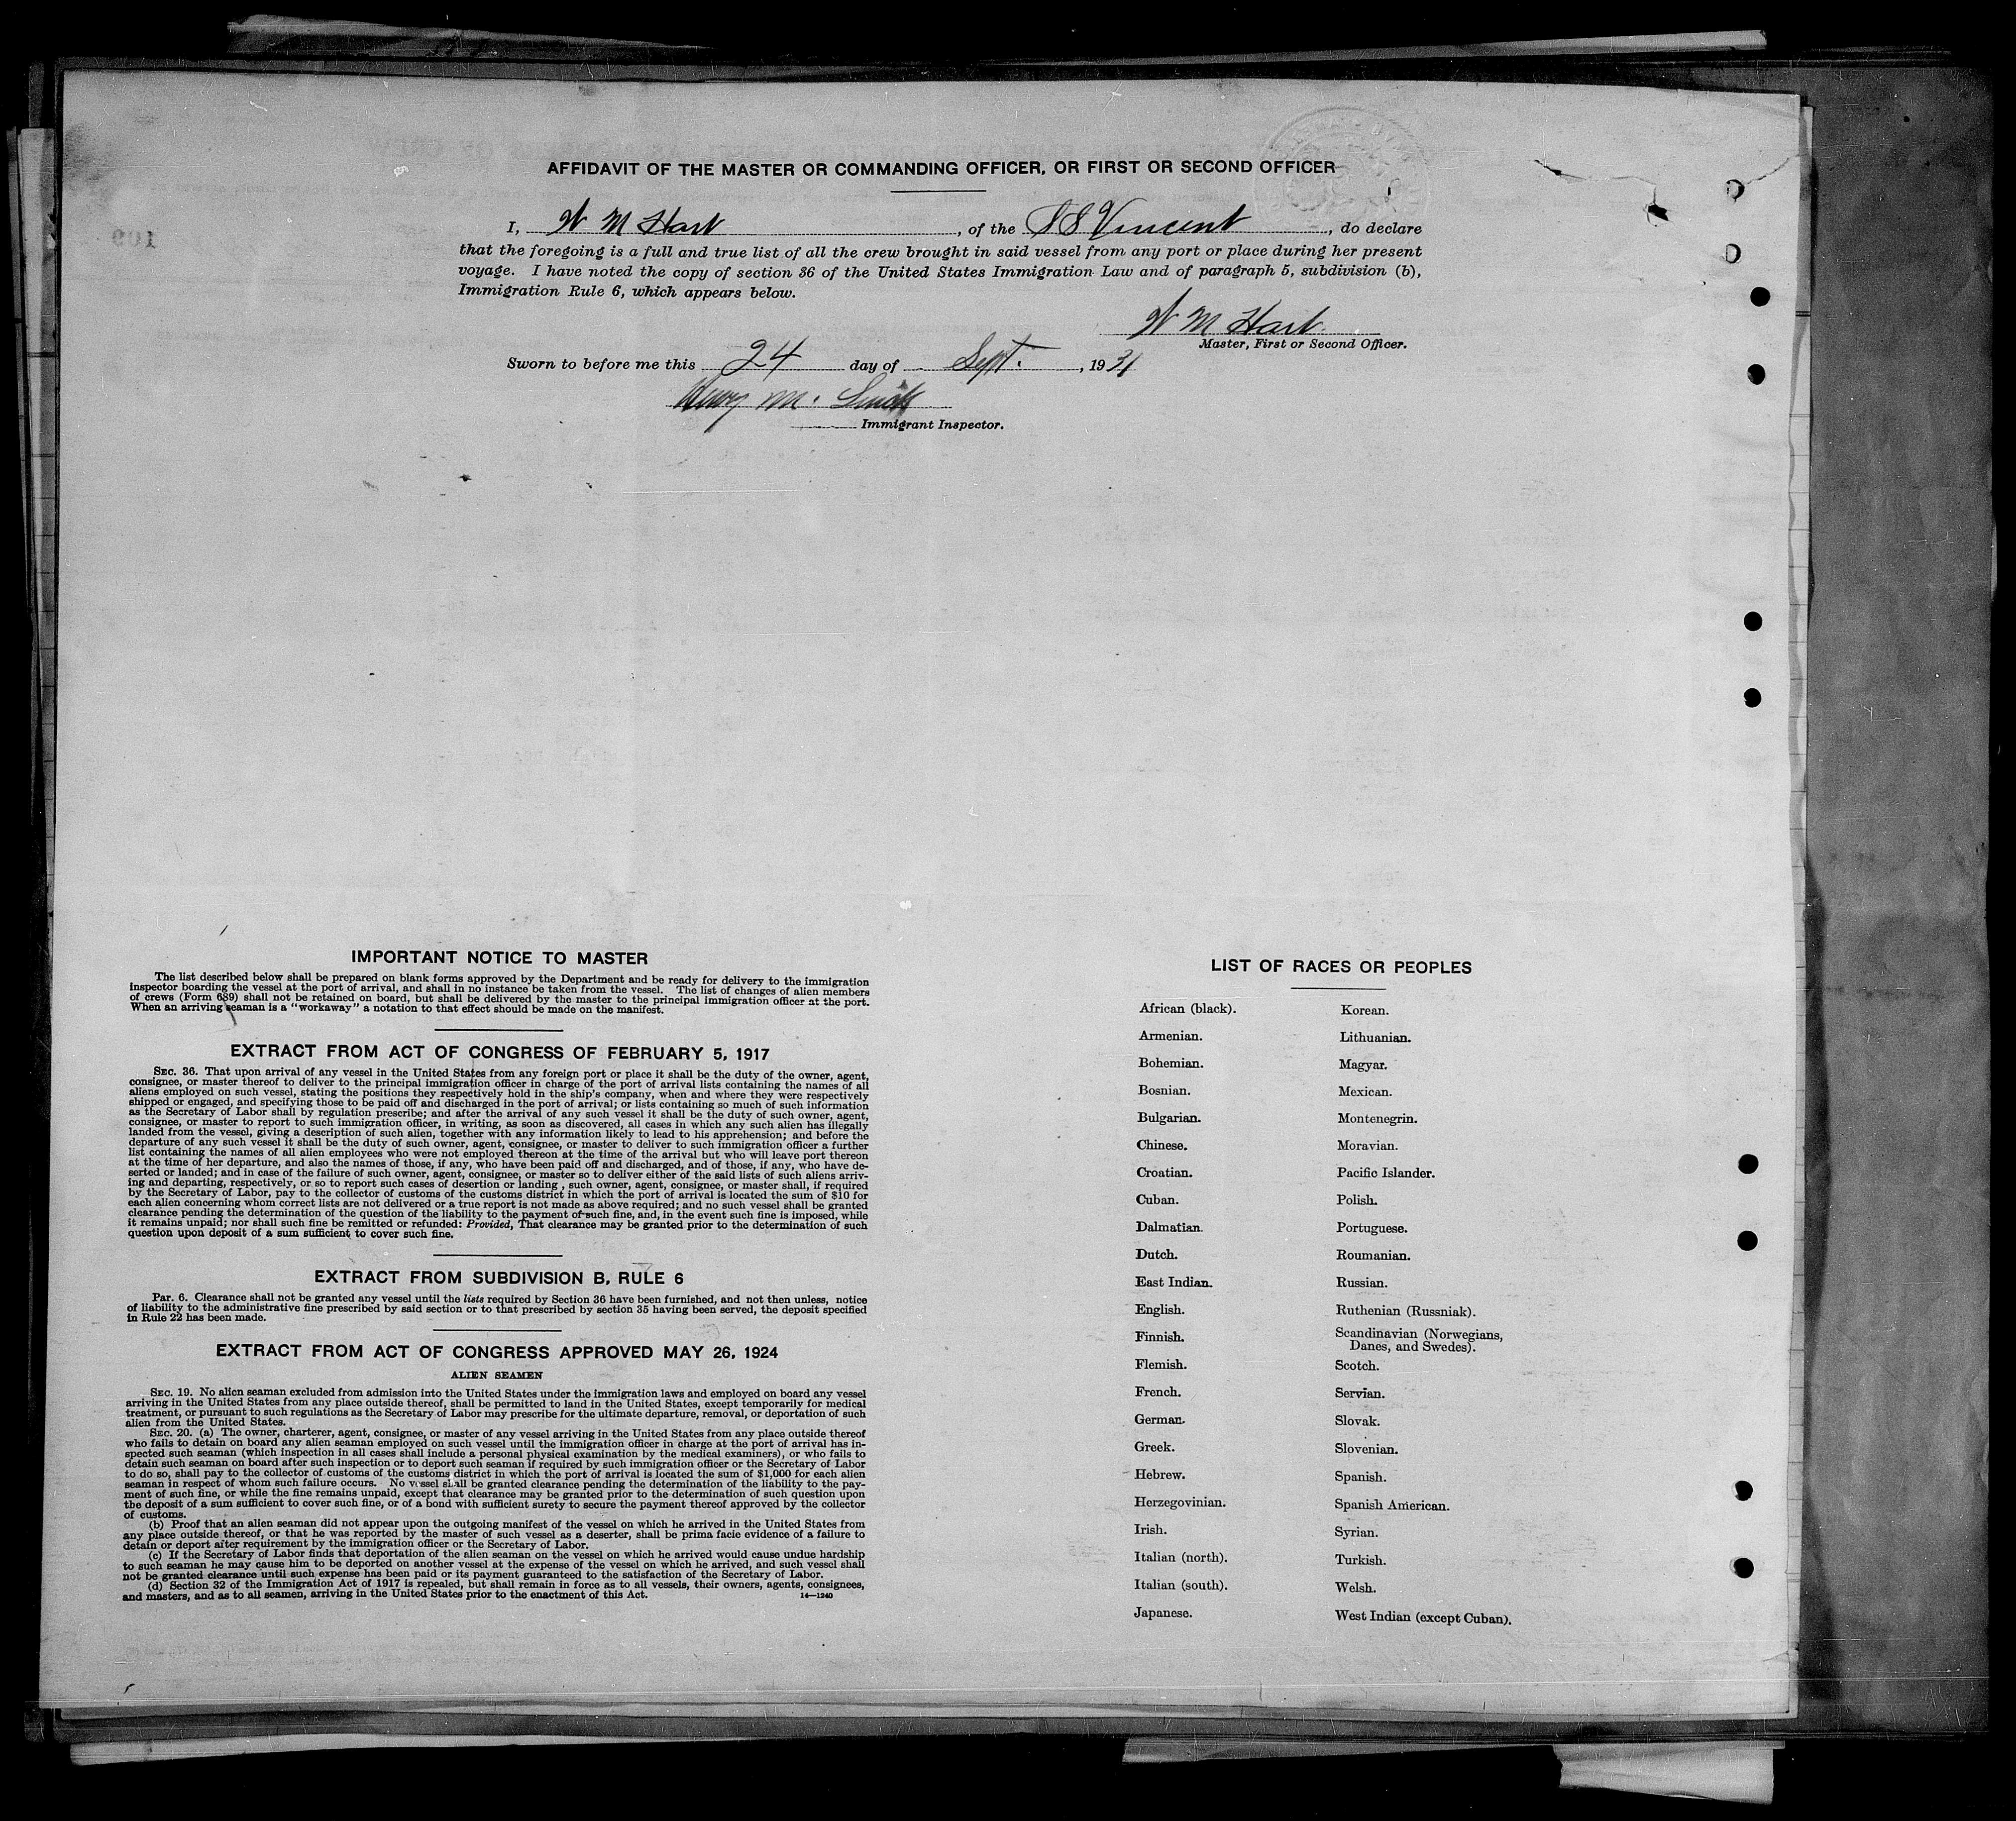 AFFIDAVIT OF THE MASTER OR COMMANDING OFFICER, OR FIRST OR SECOND OFFICER
I, W M Hart, of the SS Vincent, do declare
that the foregoing is a full and true list of all the crew brought in said vessel from any port or place during her present
voyage. I have noted the copy of section 36 of the United States Immigration Law and of paragraph 5, subdivision (b),
Immigration Rule 6, which appears below.
W M Hart
Master, First or Second Officer.
Sworn to before me this 24 day of Sept., 1931
Henry M. Smith
Immigrant Inspector.
IMPORTANT NOTICE TO MASTER
The list described below shall be prepared on blank forms approved by the Department and be ready for delivery to the immigration
inspector boarding the vessel at the port of arrival, and shall in no instance be taken from the vessel. The list of changes of alien members
of crews (Form 689) shall not be retained on board, but shall be delivered by the master to the principal immigration officer at the port.
When an arriving seaman is a "workaway" a notation to that effect should be made on the manifest.
EXTRACT FROM ACT OF CONGRESS OF FEBRUARY 5, 1917
SEC. 36. That upon arrival of any vessel in the United States from any foreign port or place it shall be the duty of the owner, agent,
consignee, or master thereof to deliver to the principal immigration officer in charge of the port of arrival lists containing the names of all
aliens employed on such vessel, stating the positions they respectively hold in the ship's company, when and where they were respectively
shipped or engaged, and specifying those to be paid off and discharged in the port of arrival; or lists containing so much of such information
as the Secretary of Labor shall by regulation prescribe; and after the arrival of any such vessel it shall be the duty of such owner, agent,
consignee, or master to report to such immigration officer, in writing, as soon as discovered, all cases in which any such alien has illegally
landed from the vessel, giving a description of such alien, together with any information likely to lead to his apprehension; and before the
departure of any such vessel it shall be the duty of such owner, agent, consignee, or master to deliver to such immigration officer a further
list containing the names of all alien employees who were not employed thereon at the time of the arrival but who will leave port thereon
at the time of her departure, and also the names of those, if any, who have been paid off and discharged, and of those, if any, who have de-
serted or landed; and in case of the failure of such owner, agent, consignee, or master so to deliver either of the said lists of such aliens arriv-
ing and departing, respectively, or so to report such cases of desertion or landing , such owner, agent, consignee, or master shall, if required
by the Secretary of Labor, pay to the collector of customs of the customs district in which the port of arrival is located the sum of $10 for
each alien concerning whom correct lists are not delivered or a true report is not made as above required; and no such vessel shall be granted
clearance pending the determination of the question of the liability to the payment of such fine, and, in the event such fine is imposed, while
it remains unpaid; nor shall such fine be remitted or refunded: Provided, That clearance may be granted prior to the determination of such
question upon deposit of a sum sufficient to cover such fine.
EXTRACT FROM SUBDIVISION B, RULE 6
Par. 6. Clearance shall not be granted any vessel until the lists required by Section 36 have been furnished, and not then unless, notice
of liability to the administrative fine prescribed by said section or to that prescribed by section 35 having been served, the deposit specified
in Rule 22 has been made.
EXTRACT FROM ACT OF CONGRESS APPROVED MAY 26, 1924
ALIEN SEAMEN
SEC. 19. No alien seaman excluded from admission into the United States under the immigration laws and employed on board any vessel
arriving in the United States from any place outside thereof, shall be permitted to land in the United States, except temporarily for medical
treatment, or pursuant to such regulations as the Secretary of Labor may prescribe for the ultimate departure, removal, or deportation of such
alien from the United States.
SEC. 20. (a) The owner, charterer, agent, consignee, or master of any vessel arriving in the United States from any place outside thereof
who fails to detain on board any alien seaman employed on such vessel until the immigration officer in charge at the port of arrival has in-
spected such seaman (which inspection in all cases shall include a personal physical examination by the medical examiners), or who fails to
detain such seaman on board after such inspection or to deport such seaman if required by such immigration officer or the Secretary of Labor
to do so, shall pay to the collector of customs of the customs district in which the port of arrival is located the sum of $1,000 for each alien
seaman in respect of whom such failure occurs. No vessel shall be granted clearance pending the determination of the liability to the pay-
ment of such fine, or while the fine remains unpaid, except that clearance may be granted prior to the determination of such question upon
the deposit of a sum sufficient to cover such fine, or of a bond with sufficient surety to secure the payment thereof approved by the collector
of customs.
(b) Proof that an alien seaman did not appear upon the outgoing manifest of the vessel on which he arrived in the United States from
any place outside thereof, or that he was reported by the master of such vessel as a deserter, shall be prima facie evidence of a failure to
detain or deport after requirement by the immigration officer or the Secretary of Labor.
(c) If the Secretary of Labor finds that deportation of the alien seaman on the vessel on which he arrived would cause undue hardship
to such seaman he may cause him to be deported on another vessel at the expense of the vessel on which he arrived, and such vessel shall
not be granted clearance until such expense has been paid or its payment guaranteed to the satisfaction of the Secretary of Labor.
(d) Section 32 of the Immigration Act of 1917 is repealed, but shall remain in force as to all vessels, their owners, agents, consignees,
and masters, and as to all seamen, arriving in the United States prior to the enactment of this Act.
14—1240
LIST OF RACES OR PEOPLES
African (black).
Armenian.
Bohemian.
Bosnian.
Bulgarian.
Chinese.
Croatian.
Cuban.
Dalmatian.
Dutch.
East Indian.
English.
Finnish.
Flemish.
French.
German.
Greek.
Hebrew.
Herzegovinian.
Irish.
Italian (north).
Italian (south).
Japanese.
Korean.
Lithuanian.
Magyar.
Mexican.
Montenegrin.
Moravian.
Pacific Islander.
Polish.
Portuguese.
Roumanian.
Russian.
Ruthenian (Russniak).
Scandinavian (Norwegians,
Danes, and Swedes).
Scotch.
Servian.
Slovak.
Slovenian.
Spanish.
Spanish American.
Syrian.
Turkish.
Welsh.
West Indian (except Cuban).